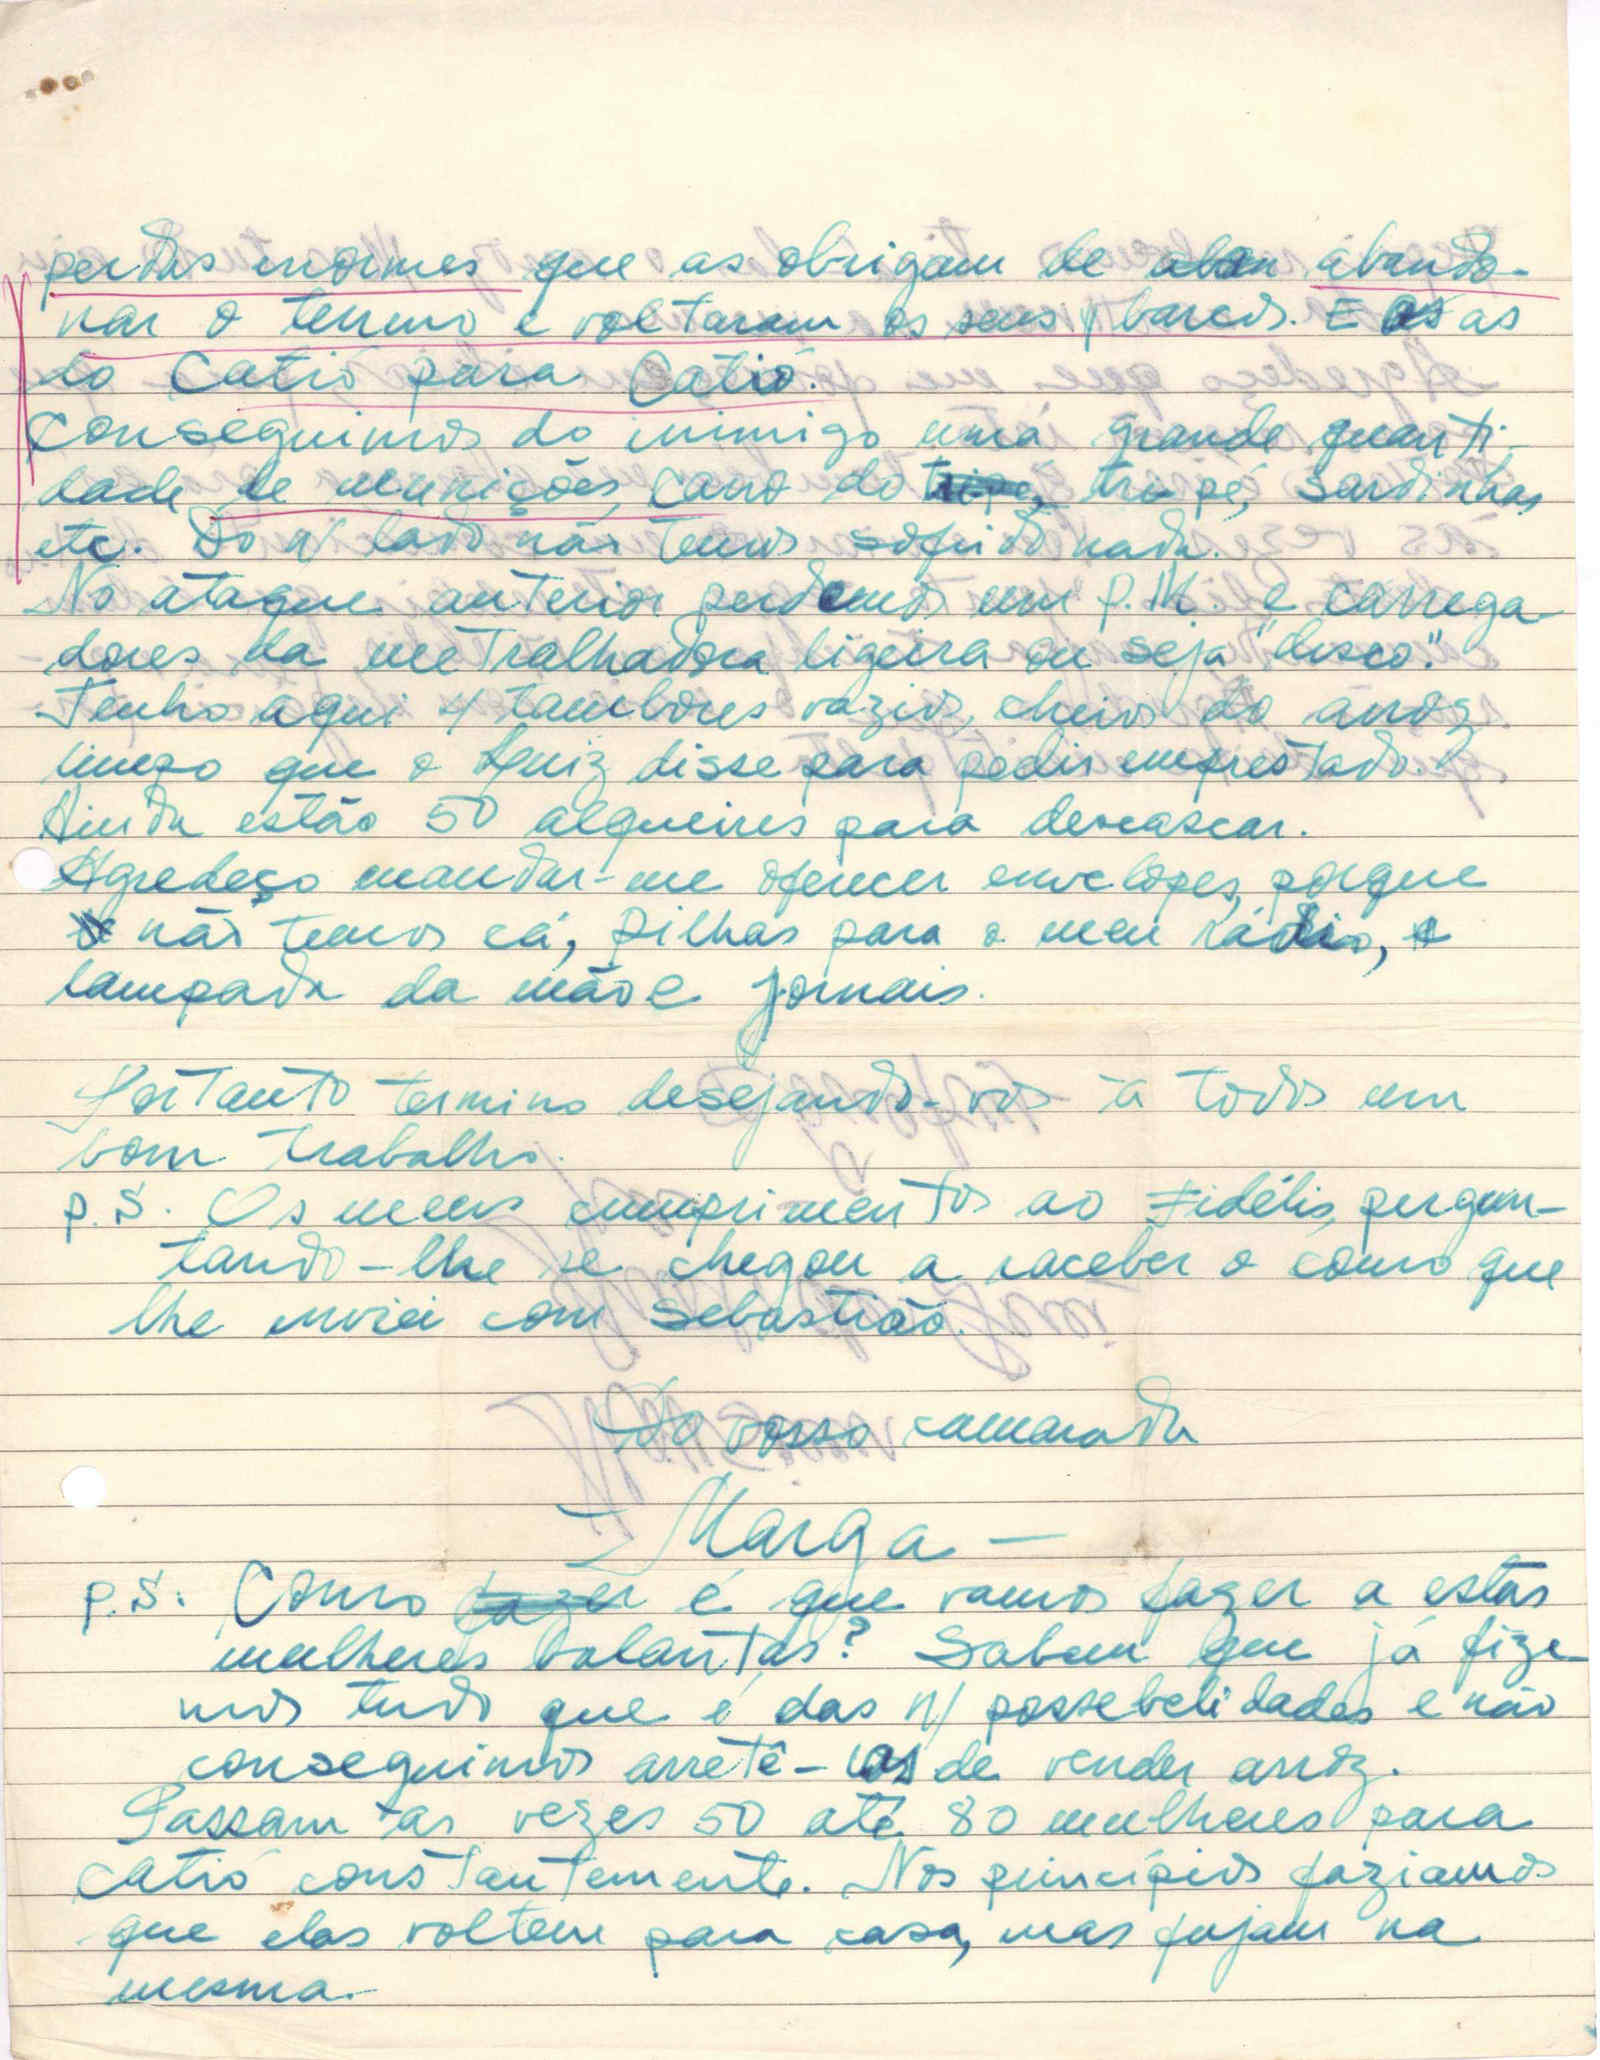 perdas enormes que as obrigam de aban abando-
nar o terreno e voltaram os seus barcos. E os as
do Catió para Catió.
Conseguimos do inimigo uma grande quanti-
dade de munições, cano do tripé, tri-pé, sardinhas
etc. Do n/ lado não temos sofrido nada.
No ataque anterior perdemos um P.M. e carrega-
dores da metralhadora ligeira ou seja "disco".
Tenho aqui 4 tambores vazios, cheios do arroz
limpo que o Luiz disse para pedir emprestado.
Ainda estão 50 alqueires para descascar.
Agredeço mandar-me oferecer envelopes, porque
não temos cá, pilhas para o meu rádio,
lampada da mão e jornais.
Portanto termino desejando-vos à todos um
bom trabalho.
P.S. Os meus cumprimentos ao Fidélis, pergun-
tando-lhe se chegou a raceber o couro que
lhe enviei com Sebastião.
Do vosso camarada
- Marga -
P.S. Como fazer é que vamos fazer a estas
mulheres balantas? Sabem que já fize-
mos tudo que é das n/ possebelidades e não
conseguimos arretê-las de vender arroz.
Passam às vezes 50 até 80 mulheres para
Catió constantemente. Nos princípios faziamos
que elas voltem para casa, mas fujam na
mesma.